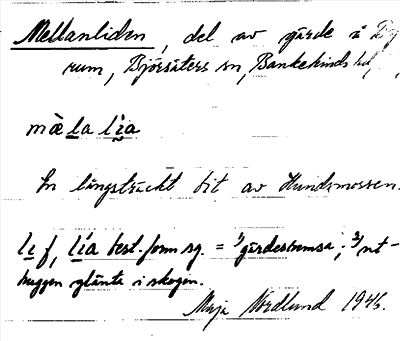 Mellanliden, del av gärde å By
rum, Björsäters sn, Bankekinds hd,
mæ̀la lìa
En långsträckt bit av Hundsmossen.
lı f, lía best. form sg. = ¹/gärdesremsa; ²/ut-
huggen glänta i skogen.
Maja Nordlund 1946.